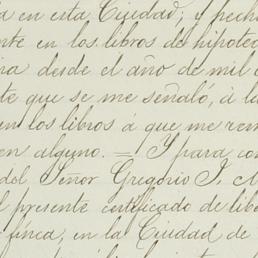 en esta Ciudad; y hecho
nte en los libros de hipotec
desde el año de mil
te que se me señaló, á la
en los libros á que me rem
en alguno. — Y para con
del Señor Gregorio J.
l presente certificado de libe
finca, en la Ciudad de